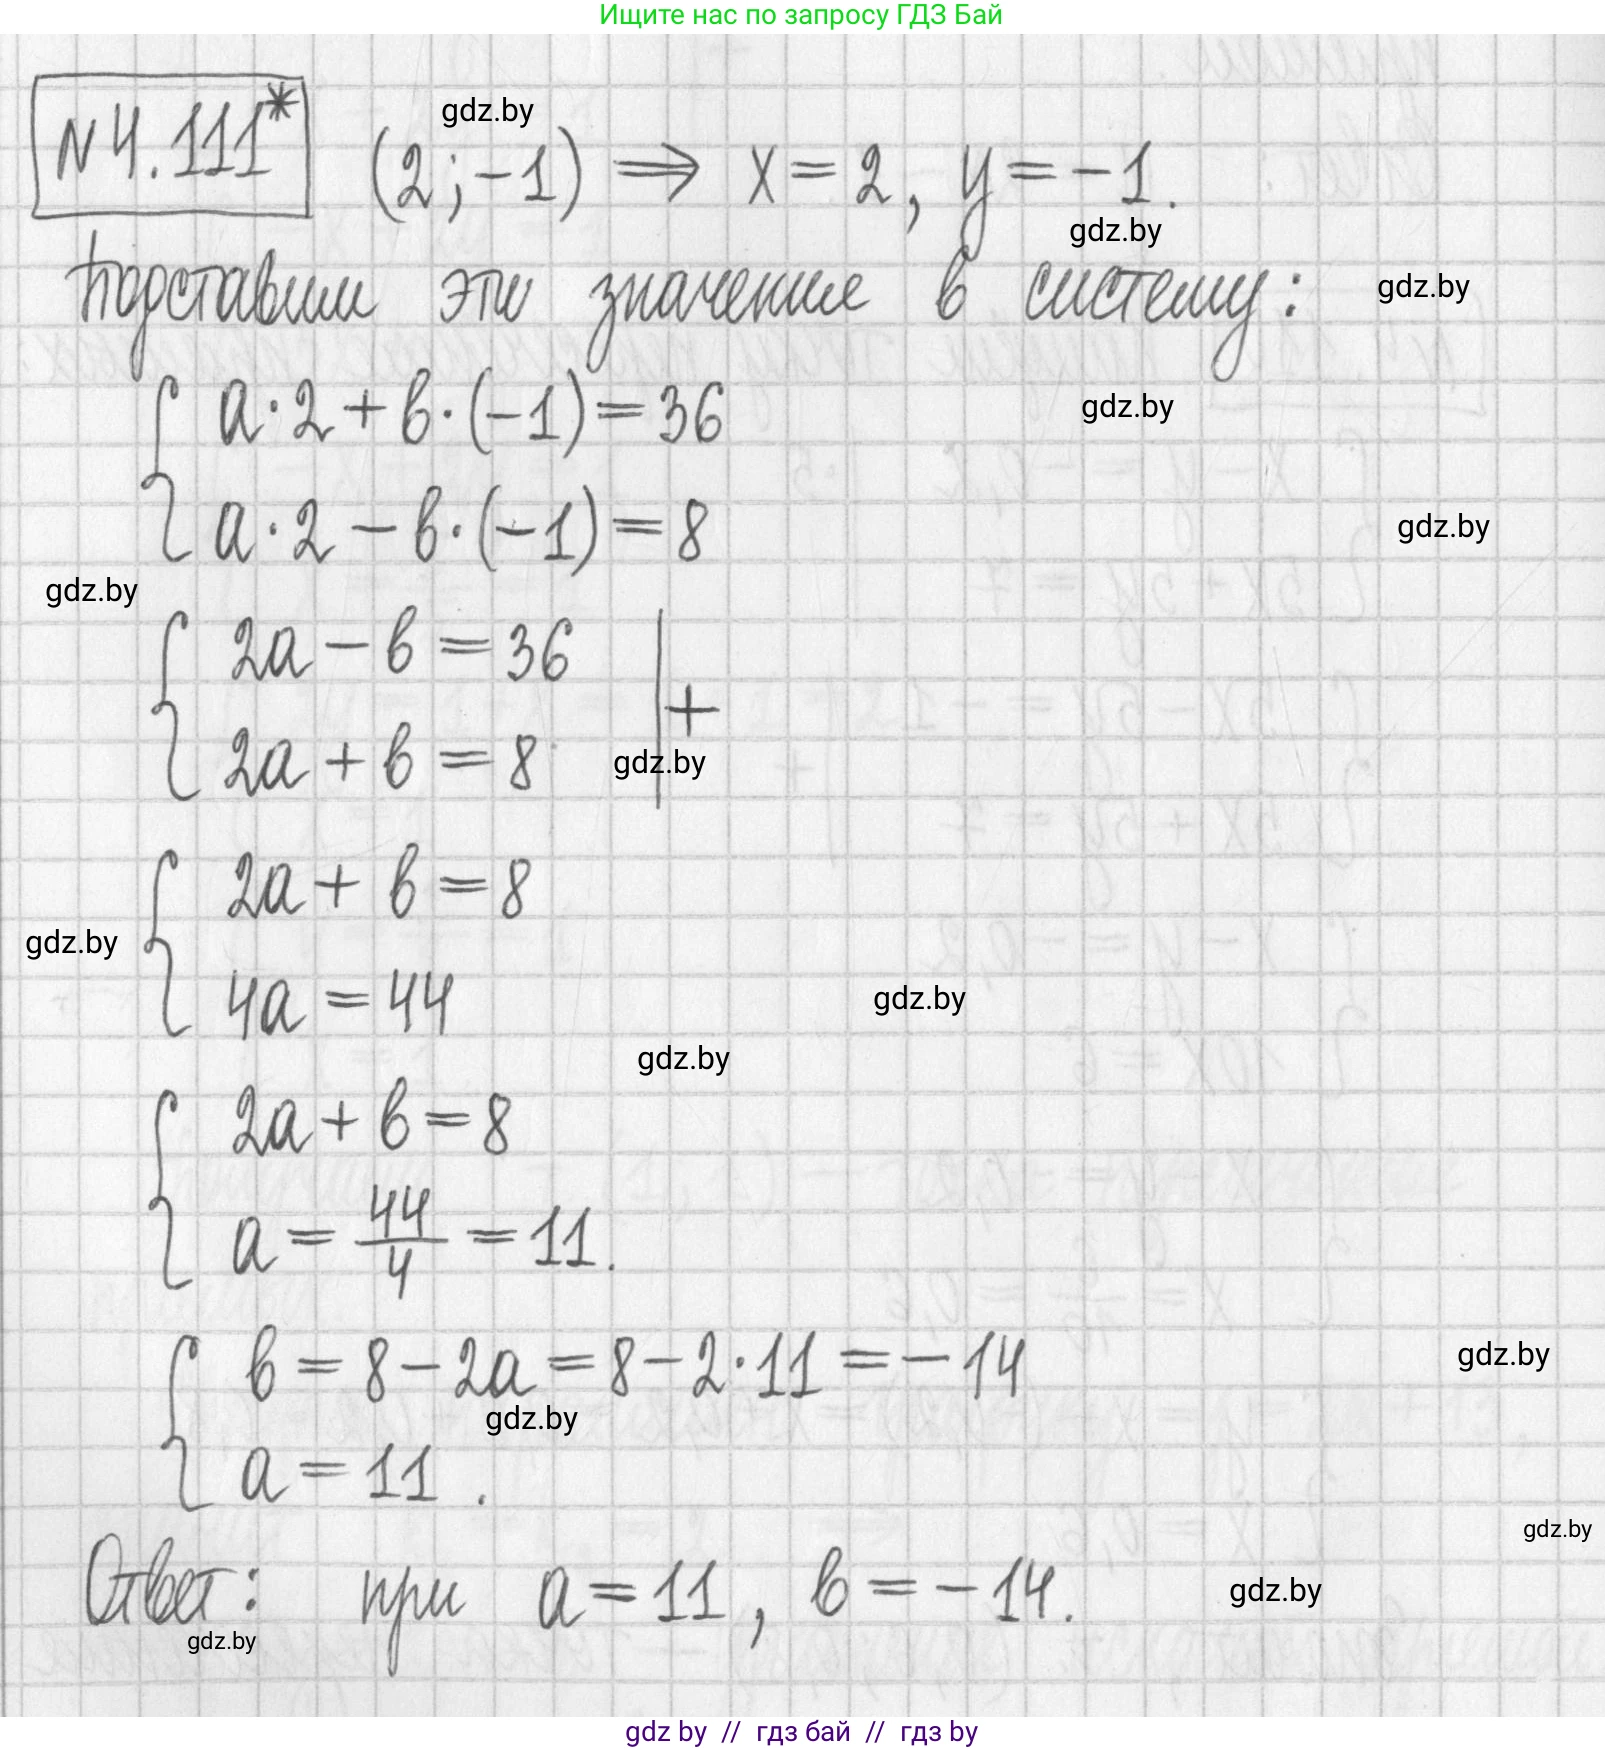 Ищите нас по запросу ГДЗ Бай
N 4.111* (2;-1) ⇒ x = 2, y = -1.
gdz.by
gdz.by
Подставим эти значение в систему:
gdz.by
{ a·2 + b·(-1) = 36
gdz.by
a·2 - b·(-1) = 8
gdz.by
gdz.by
{ 2a - b = 36 | +
2a + b = 8
gdz.by
{ 2a + b = 8
gdz.by
4a = 44
gdz.by
gdz.by
{ 2a + b = 8
a = 44/4 = 11.
{ b = 8 - 2a = 8 - 2·11 = -14
gdz.by
gdz.by
a = 11.
gdz.by
Ответ: при a = 11, b = -14.
gdz.by
gdz.by
gdz by // гдз бай // гдз by